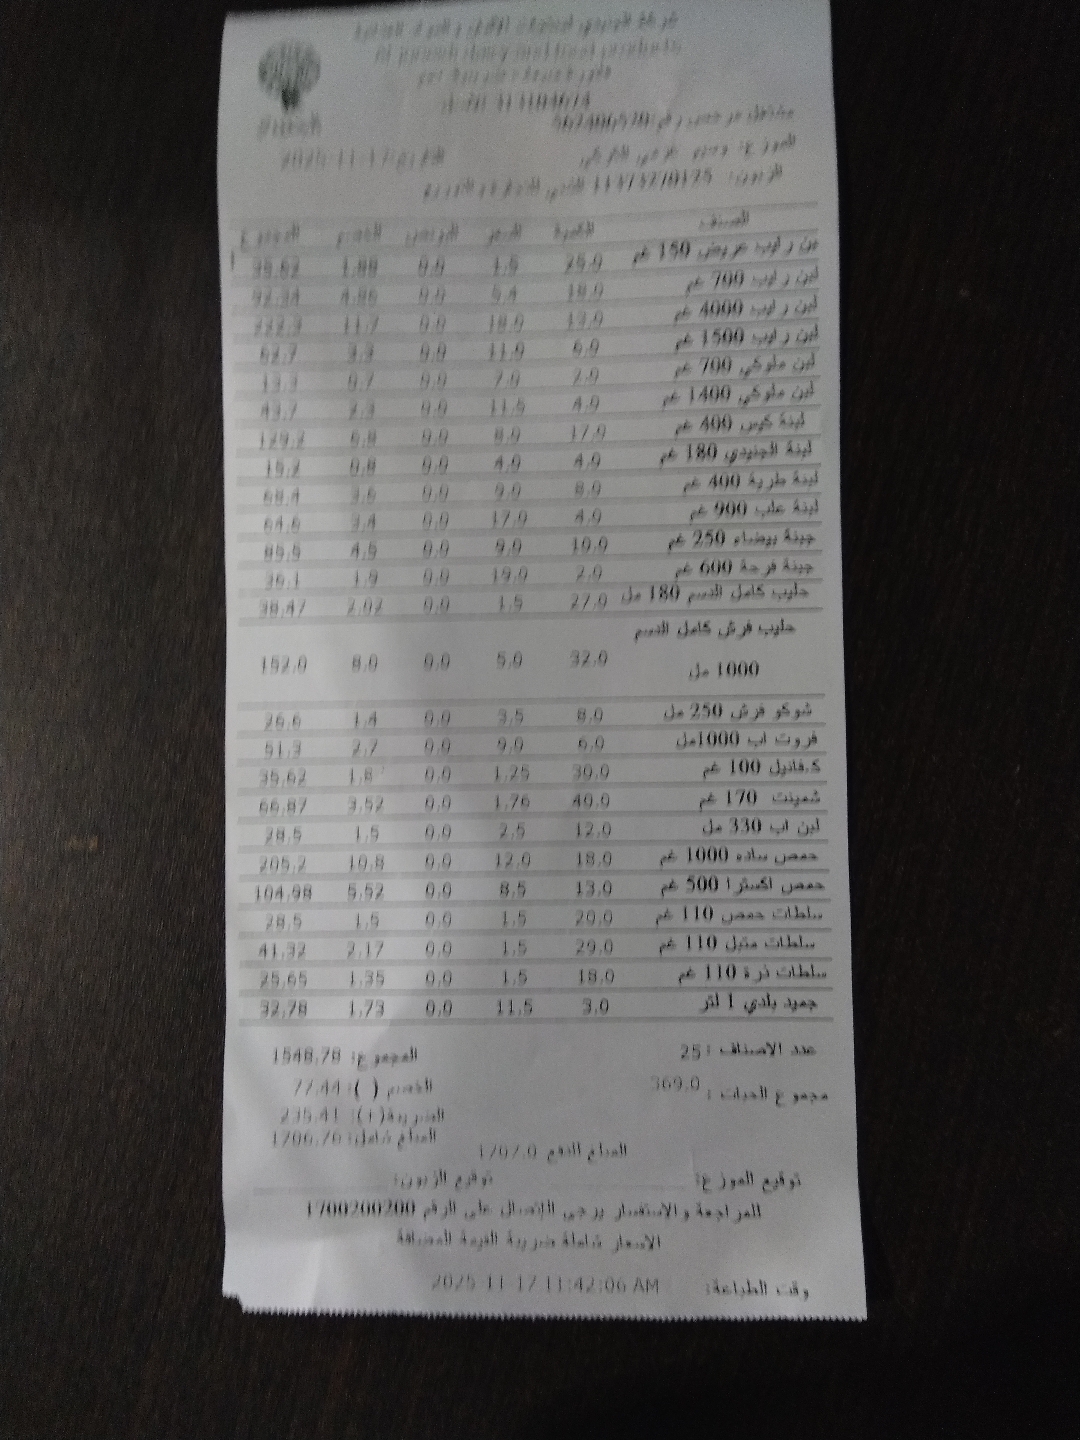 شركة الجنيدي لمنتجات الألبان والمواد الغذائية
Al Juneidi dairy and food products
مشتغل مرخص رقم: 562406570
التاريخ: 2025-11-17
الصنف الكمية السعر الخصم المجموع
لبن رايب عريض 150 غم 25.0 1.5 0.0 1.88 35.62
لبن رايب 700 غم 18.0 5.4 0.0 4.86 92.34
لبن رايب 4000 غم 13.0 18.0 0.0 11.7 222.3
لبن رايب 1500 غم 6.0 11.0 0.0 3.3 62.7
لبن ملوكي 700 غم 2.0 7.0 0.0 0.7 13.3
لبن ملوكي 1400 غم 4.0 11.5 0.0 2.3 43.7
لبنة كيس 400 غم 17.0 8.0 0.0 6.8 129.2
لبنة الجنيدي 180 غم 4.0 4.0 0.0 0.8 15.2
لبنة طرية 400 غم 8.0 9.0 0.0 3.6 68.4
لبنة علب 900 غم 4.0 17.0 0.0 3.4 64.6
جبنة بيضاء 250 غم 10.0 9.0 0.0 4.5 85.5
جبنة فرحة 600 غم 2.0 19.0 0.0 1.9 36.1
حليب كامل الدسم 180 مل 27.0 1.5 0.0 2.02 38.47
حليب فرش كامل الدسم
1000 مل 32.0 5.0 0.0 8.0 152.0
شوكو فرش 250 مل 8.0 3.5 0.0 1.4 26.6
فروت اب 1000مل 6.0 9.0 0.0 2.7 51.3
ك.فانيل 100 غم 30.0 1.25 0.0 1.8 35.62
شمينت 170 غم 40.0 1.76 0.0 3.52 66.87
لبن اب 330 مل 12.0 2.5 0.0 1.5 28.5
حمص ساده 1000 غم 18.0 12.0 0.0 10.8 205.2
حمص اكسترا 500 غم 13.0 8.5 0.0 5.52 104.98
سلطات حمص 110 غم 20.0 1.5 0.0 1.5 28.5
سلطات متبل 110 غم 29.0 1.5 0.0 2.17 41.32
سلطات ذرة 110 غم 18.0 1.5 0.0 1.35 25.65
جميد بلدي 1 لتر 3.0 11.5 0.0 1.73 32.78
عدد الاصناف : 25 المجموع: 1548.78
مجموع الحبات : 369.0 الخصم ( ): 77.44
الضريبة(+): 235.41
المبلغ شامل: 1706.76
المبلغ للدفع 1707.0
توقيع الموزع: توقيع الزبون:
للمراجعة والاستفسار يرجى الاتصال على الرقم 1700200200
الاسعار شاملة ضريبة القيمة المضافة
وقت الطباعة: 2025-11-17 11:42:06 AM